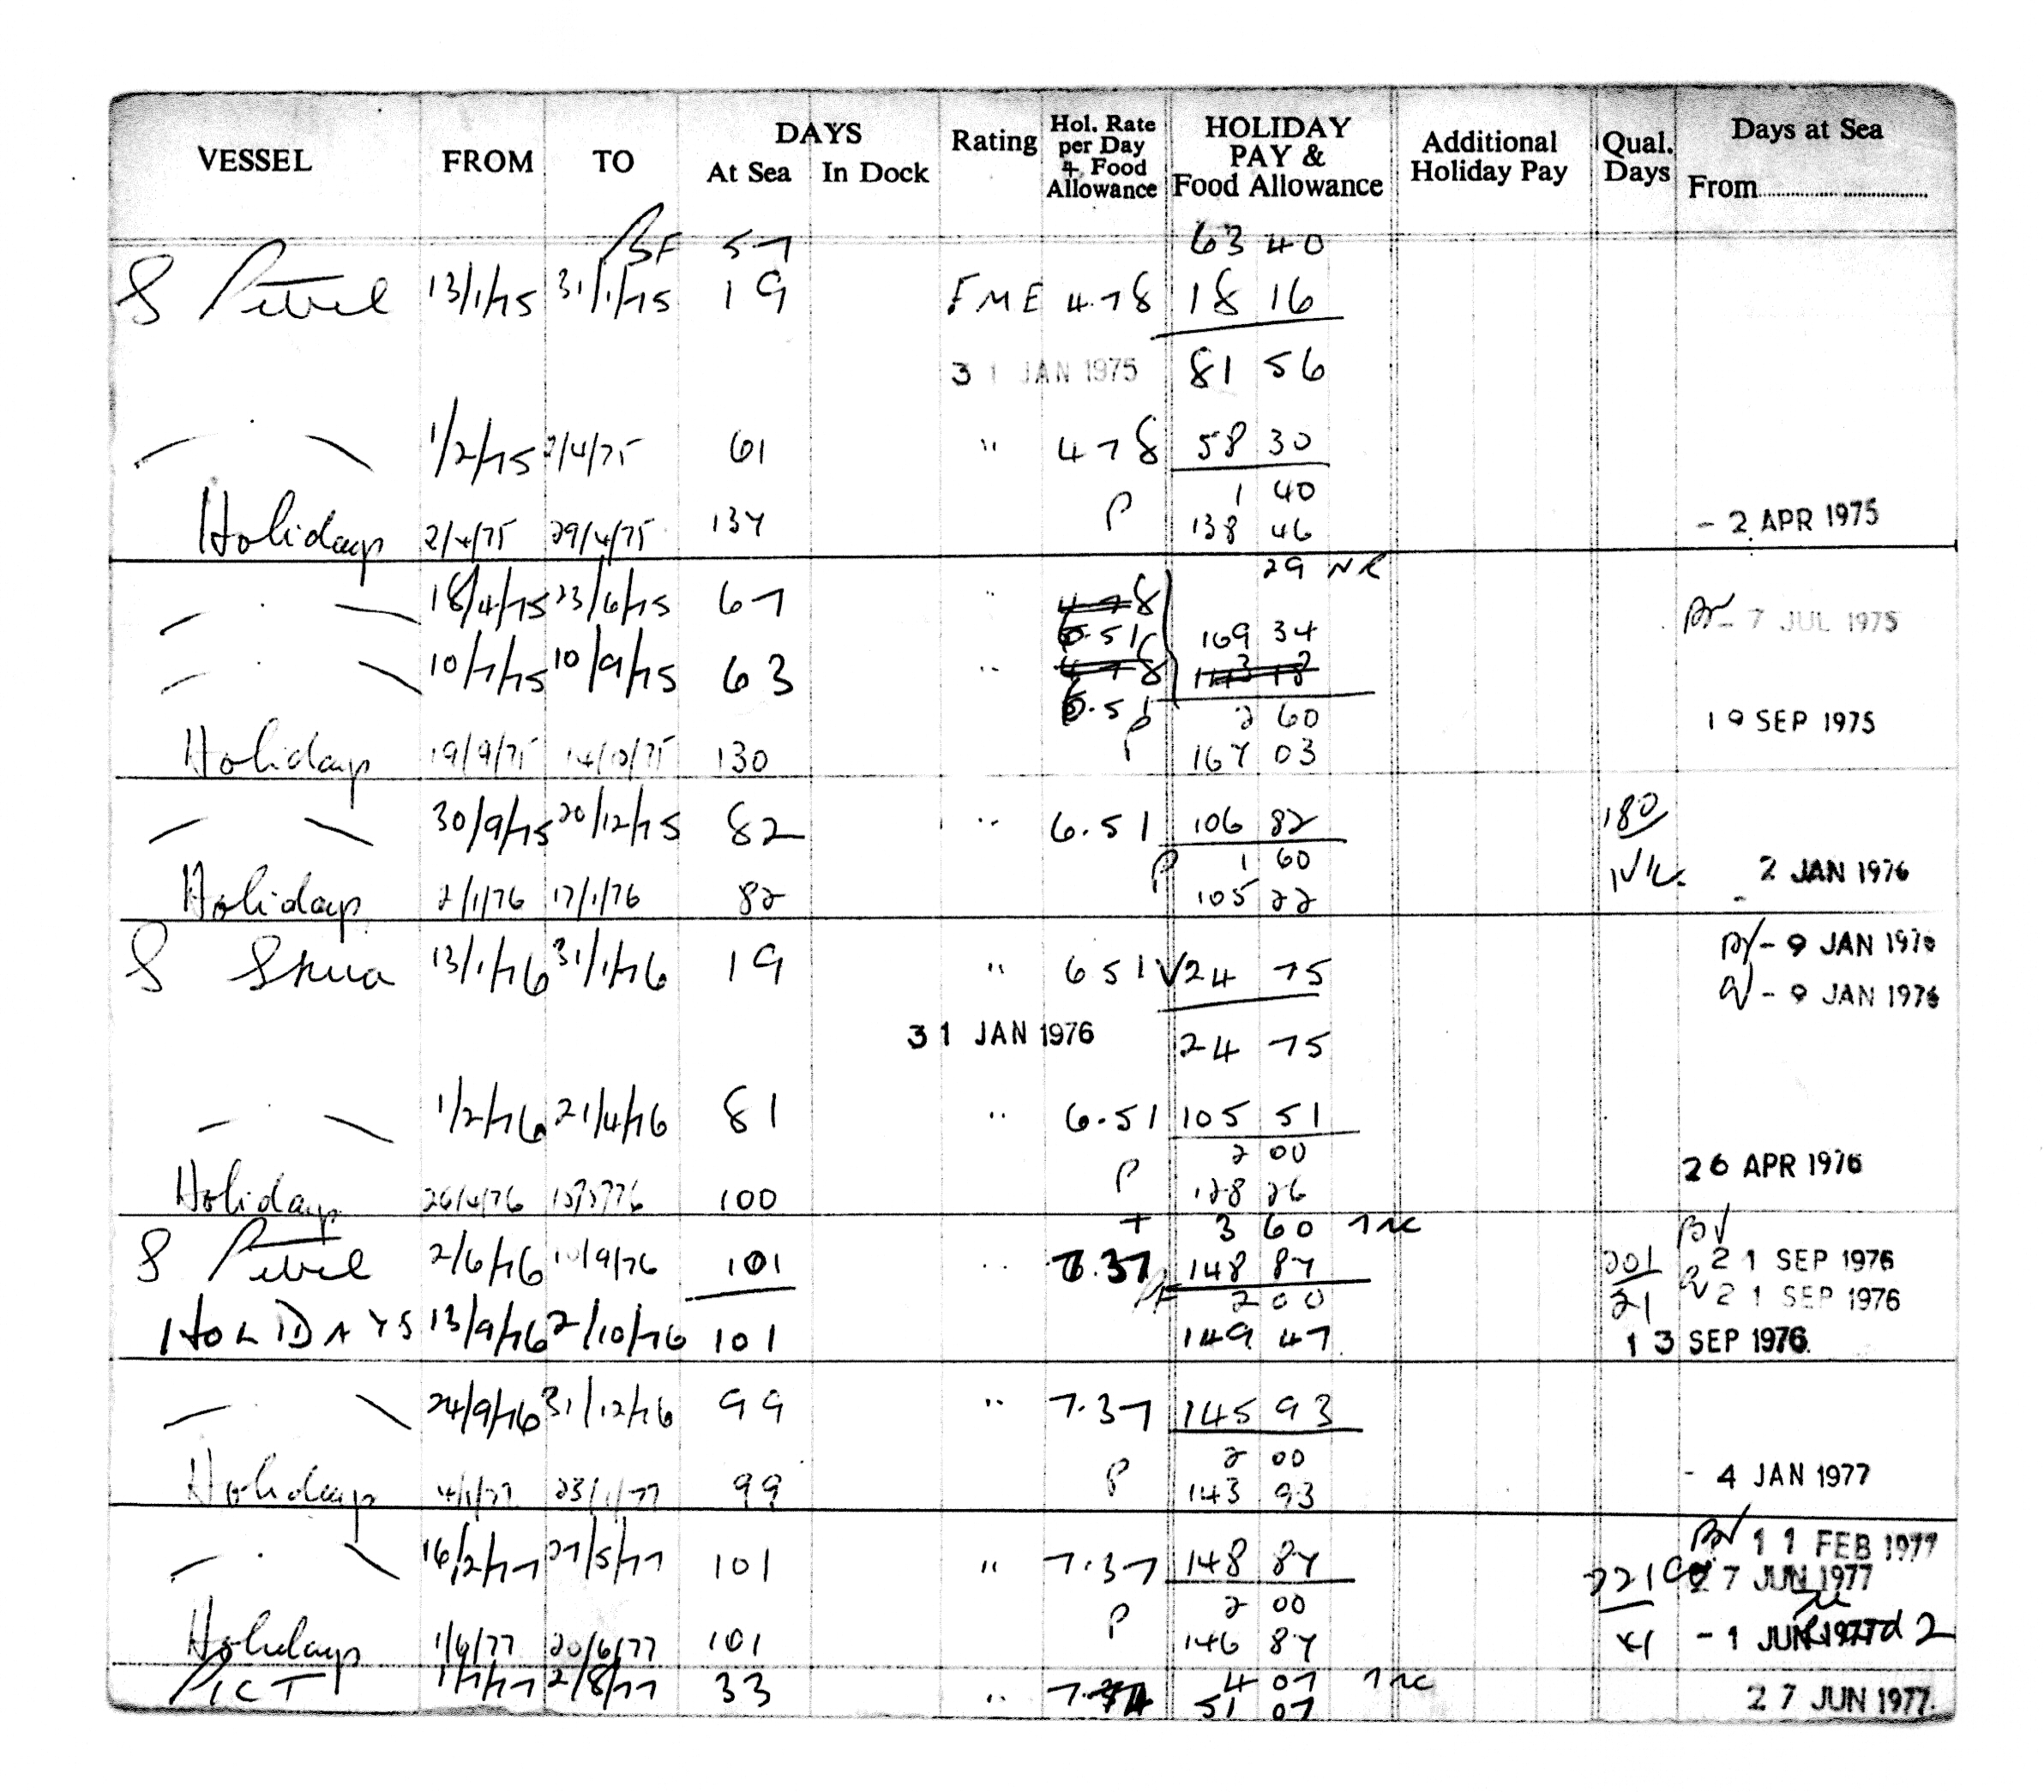 VESSEL FROM TO DAYS At Sea In Dock Rating Hol. Rate per Day + Food Allowance HOLIDAY PAY & Food Allowance Additional Holiday Pay Qual. Days Days at Sea From
BF 57 63 40
S Petrel 13/1/75 31/1/75 19 FME 4.78 18 16
31 JAN 1975 81 56
1/2/75 2/4/75 61 " 4 78 58 30
1 40
Holidays 2/4/75 29/4/75 137 P 138 46 - 2 APR 1975
29 NR
18/4/75 23/6/75 67 " 4 78 - 7 JUL 1975
6.51 169 34
10/7/75 10/9/75 63 " 4 78
6.51 2 60 19 SEP 1975
Holidays 19/9/75 14/10/75 130 P 167 03
30/9/75 20/12/75 82 " 6.51 106 82 180
P 1 60 2 JAN 1976
Holidays 2/1/76 17/1/76 82 105 22
S Skua 13/1/76 31/1/76 19 " 6 51 24 75 - 9 JAN 1976
- 9 JAN 1976
31 JAN 1976 24 75
1/2/76 21/4/76 81 " 6.51 105 51
2 00
Holidays 26/4/76 100 P 128 26 26 APR 1976
+ 3 60
S Petrel 2/6/76 10/9/76 101 " 7.37 148 87 201 21 SEP 1976
2 00 21 21 SEP 1976
HOLIDAYS 13/9/76 2/10/76 101 149 47 13 SEP 1976
24/9/76 31/12/76 99 " 7.37 145 93
2 00
Holidays 4/1/77 23/1/77 99 P 143 93 - 4 JAN 1977
16/2/77 27/5/77 101 " 7.37 148 87 221 11 FEB 1977
27 JUN 1977
2 00
Holidays 1/6/77 20/6/77 101 P 146 87 41 - 1 JUN 1977
4 07
PICT 1/7/77 2/8/77 33 " 51 07 27 JUN 1977